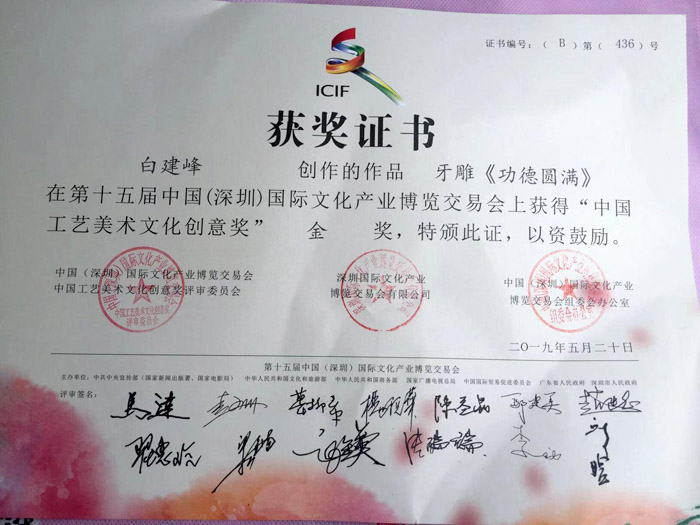 证书编号：（ B ）第（ 436 ）号
ICIF
获奖证书
白建峰 创作的作品 牙雕《功德圆满》
在第十五届中国(深圳)国际文化产业博览交易会上获得“中国
工艺美术文化创意奖” 金 奖，特颁此证，以资鼓励。
中国（深圳）国际文化产业博览交易会 深圳国际文化产业 中国（深圳）国际文化产业
中国工艺美术文化创意奖评审委员会 博览交易会有限公司 博览交易会组委会办公室
中国工艺美术文化创意奖
评审委员会
二〇一九年五月二十日
第十五届中国（深圳）国际文化产业博览交易会
主办单位：中共中央宣传部（国家新闻出版署、国家电影局） 中华人民共和国文化和旅游部 中华人民共和国商务部 国家广播电视总局 中国国际贸易促进委员会 广东省人民政府 深圳市人民政府
评审签名：